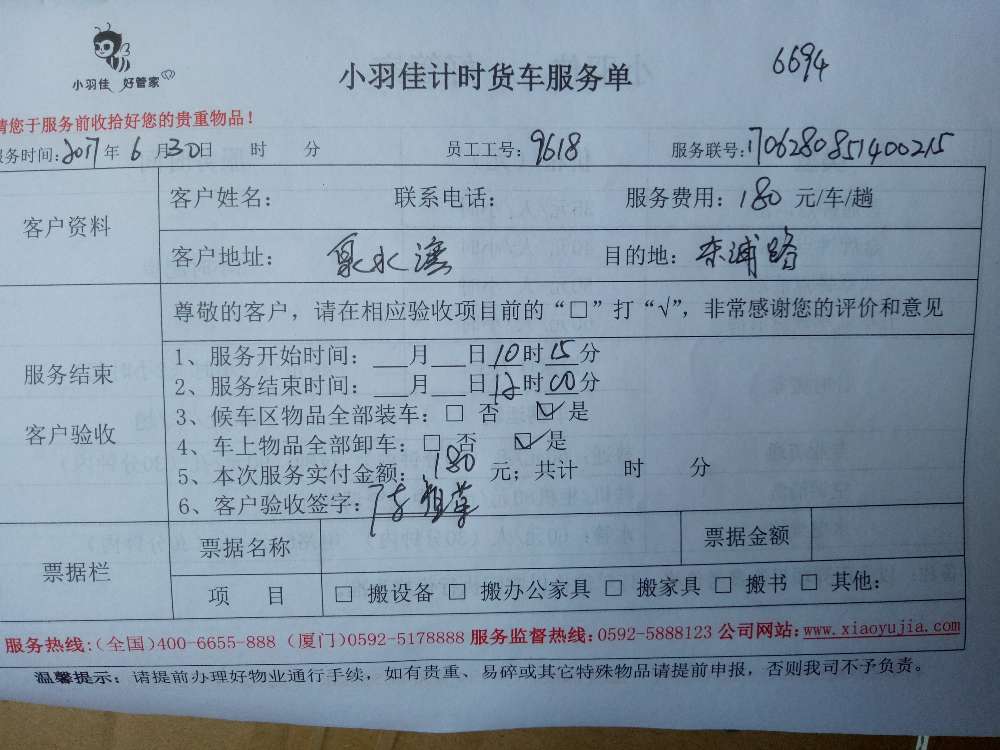 小羽佳 好管家
小羽佳计时货车服务单
6694
请您于服务前收拾好您的贵重物品！
服务时间：2017年6月30日 时 分 员工工号：9618 服务联号：1706280851400215
客户资料
客户姓名： 联系电话： 服务费用：180 元/车/趟
客户地址：泉水湾 目的地：东浦路
服务结束
客户验收
尊敬的客户，请在相应验收项目前的“□”打“√”，非常感谢您的评价和意见
1、服务开始时间：___月___日10时15分
2、服务结束时间：___月___日12时00分
3、候车区物品全部装车：□ 否 ☑ 是
4、车上物品全部卸车：□ 否 ☑ 是
5、本次服务实付金额：180 元；共计 时 分
6、客户验收签字：陈
票据栏
票据名称 票据金额
项 目 □ 搬设备 □ 搬办公家具 □ 搬家具 □ 搬书 □ 其他：
服务热线：（全国）400-6655-888（厦门）0592-5178888 服务监督热线：0592-5888123 公司网站：www.xiaoyujia.com
温馨提示：请提前办理好物业通行手续，如有贵重、易碎或其它特殊物品请提前申报，否则我司不予负责。